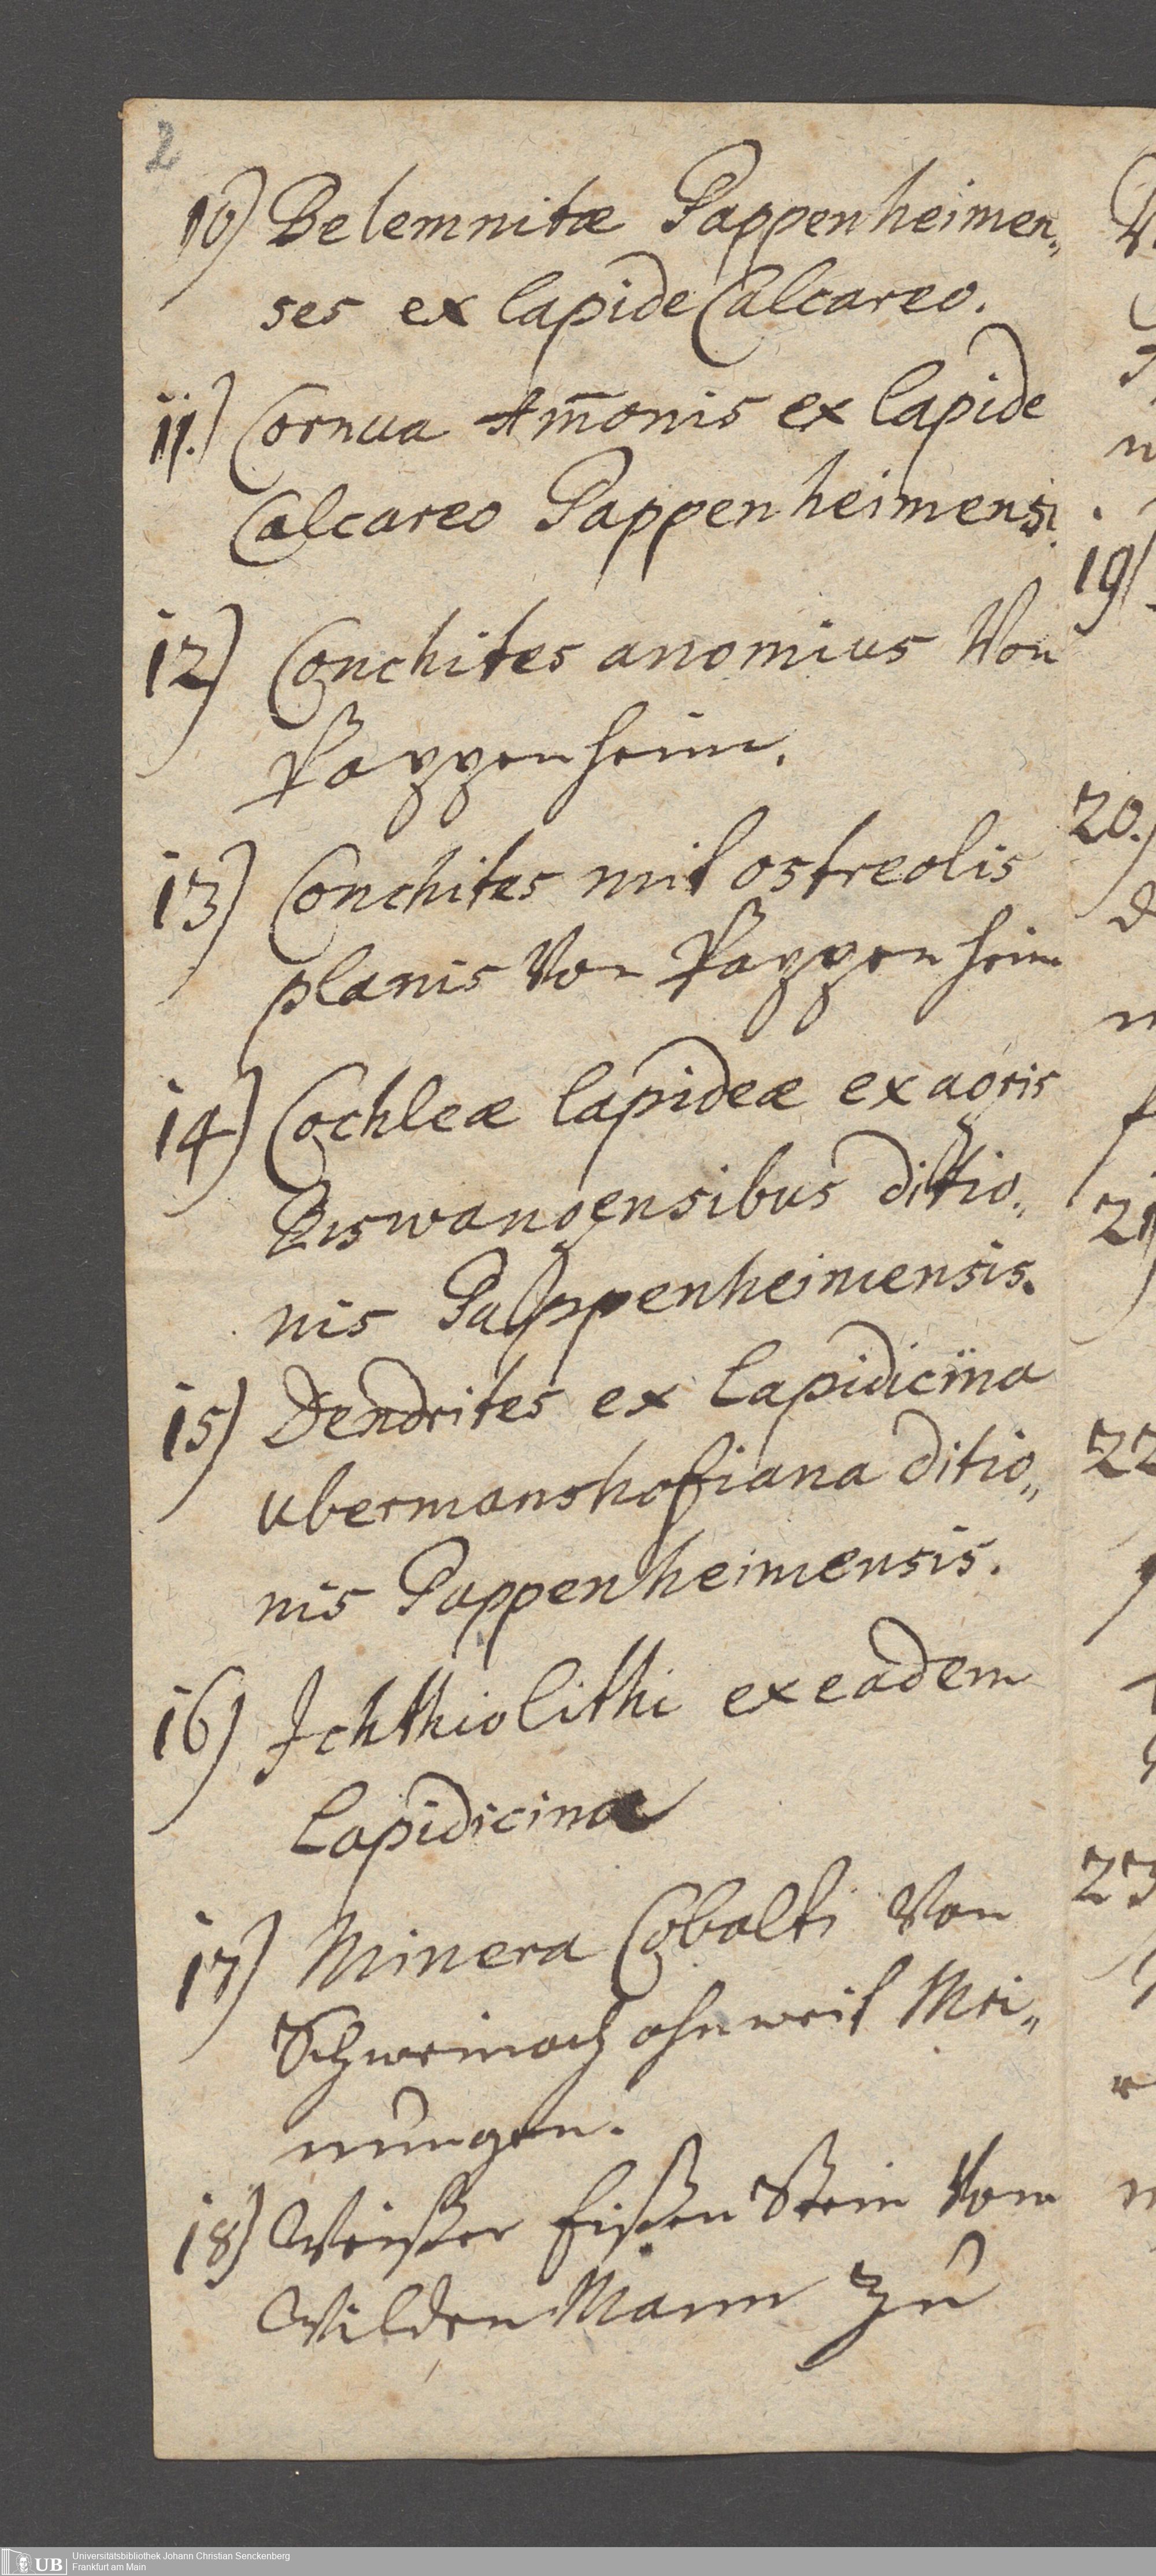 2
10) Belemnitæ Pappenheimen„
ses ex lapide Calcareo.
11.) Cornua Am̄onis ex lapide
Calcareo Pappenheimensi.
12) Conchites anomius Von
Pappenheim.
13) Conchites mit ostreolis
planis Von Pappenheim
14) Cochleæ lapideæ ex agris
Biswangensibus dittio„
nis Pappenheimensis.
15) Dendrites ex Lapidicina
ubermanshofiana ditio„
nis Pappenheimensis.
16) Ichthiolithi ex eadem
Lapidicina
17) Minera Cobalti Von
Schweinach ohnweit Mei„
nungen.
18) Weißer Eißen Stein Vom
Wilden Mann zu
19)
20.)
21)
22
23
UB Universitätsbibliothek Johann Christian Senckenberg
Frankfurt am Main